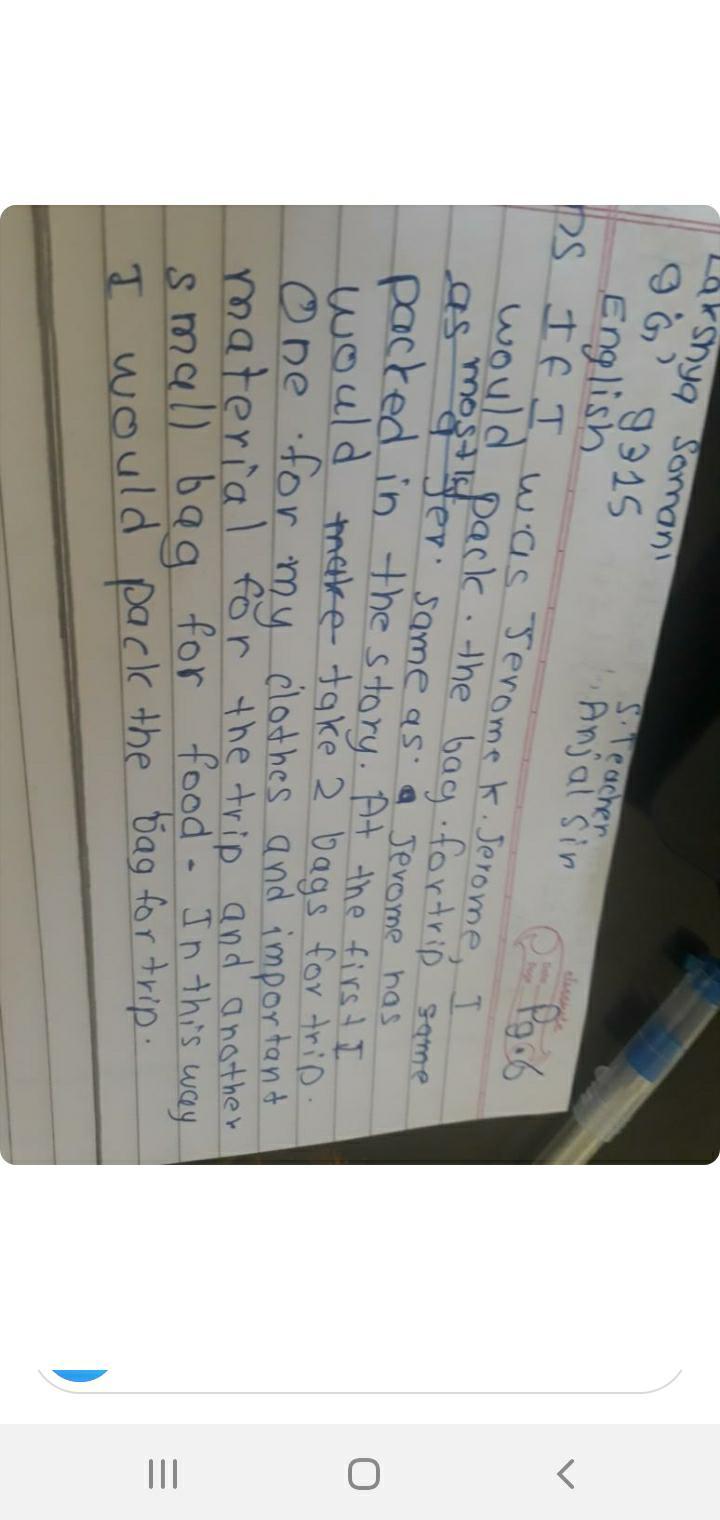 Lakshya Somani
9G, 9315
English
S. Teacher
Anjal Sir
classmate
Date
Page
Pg.6
If I was Jerome K. Jerome, I
would pack the bag for trip same
as mostly same as Jerome has
packed in the story. At the first I
would make take 2 bags for trip.
One for my clothes and important
material for the trip and another
small bag for food. In this way
I would pack the bag for trip.